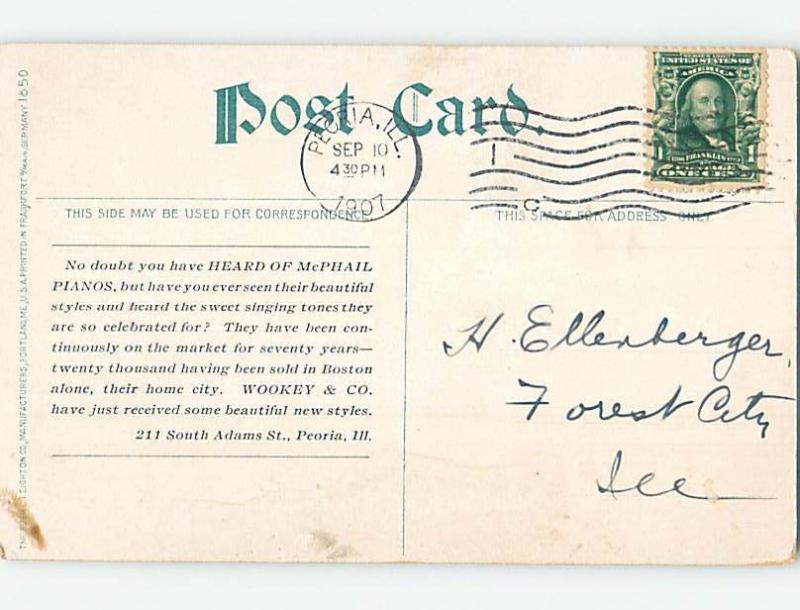 Post Card.
PEORIA, ILL.
SEP 10
4 30 PM
1907
C
SERIES 1902
UNITED STATES OF
AMERICA
1 FRANKLIN 1
ONE CENT
THIS SIDE MAY BE USED FOR CORRESPONDENCE
THIS SPACE FOR ADDRESS ONLY
No doubt you have HEARD OF McPHAIL
PIANOS, but have you ever seen their beautiful
styles and heard the sweet singing tones they
are so celebrated for? They have been con-
tinuously on the market for seventy years—
twenty thousand having been sold in Boston
alone, their home city. WOOKEY & CO.
have just received some beautiful new styles.
211 South Adams St., Peoria, Ill.
H. Ellenberger,
Forest City
Ill
LEIGHTON CO., MANUFACTURERS, PORTLAND, ME., U.S.A. PRINTED IN FRANKFORT GERMANY 1650